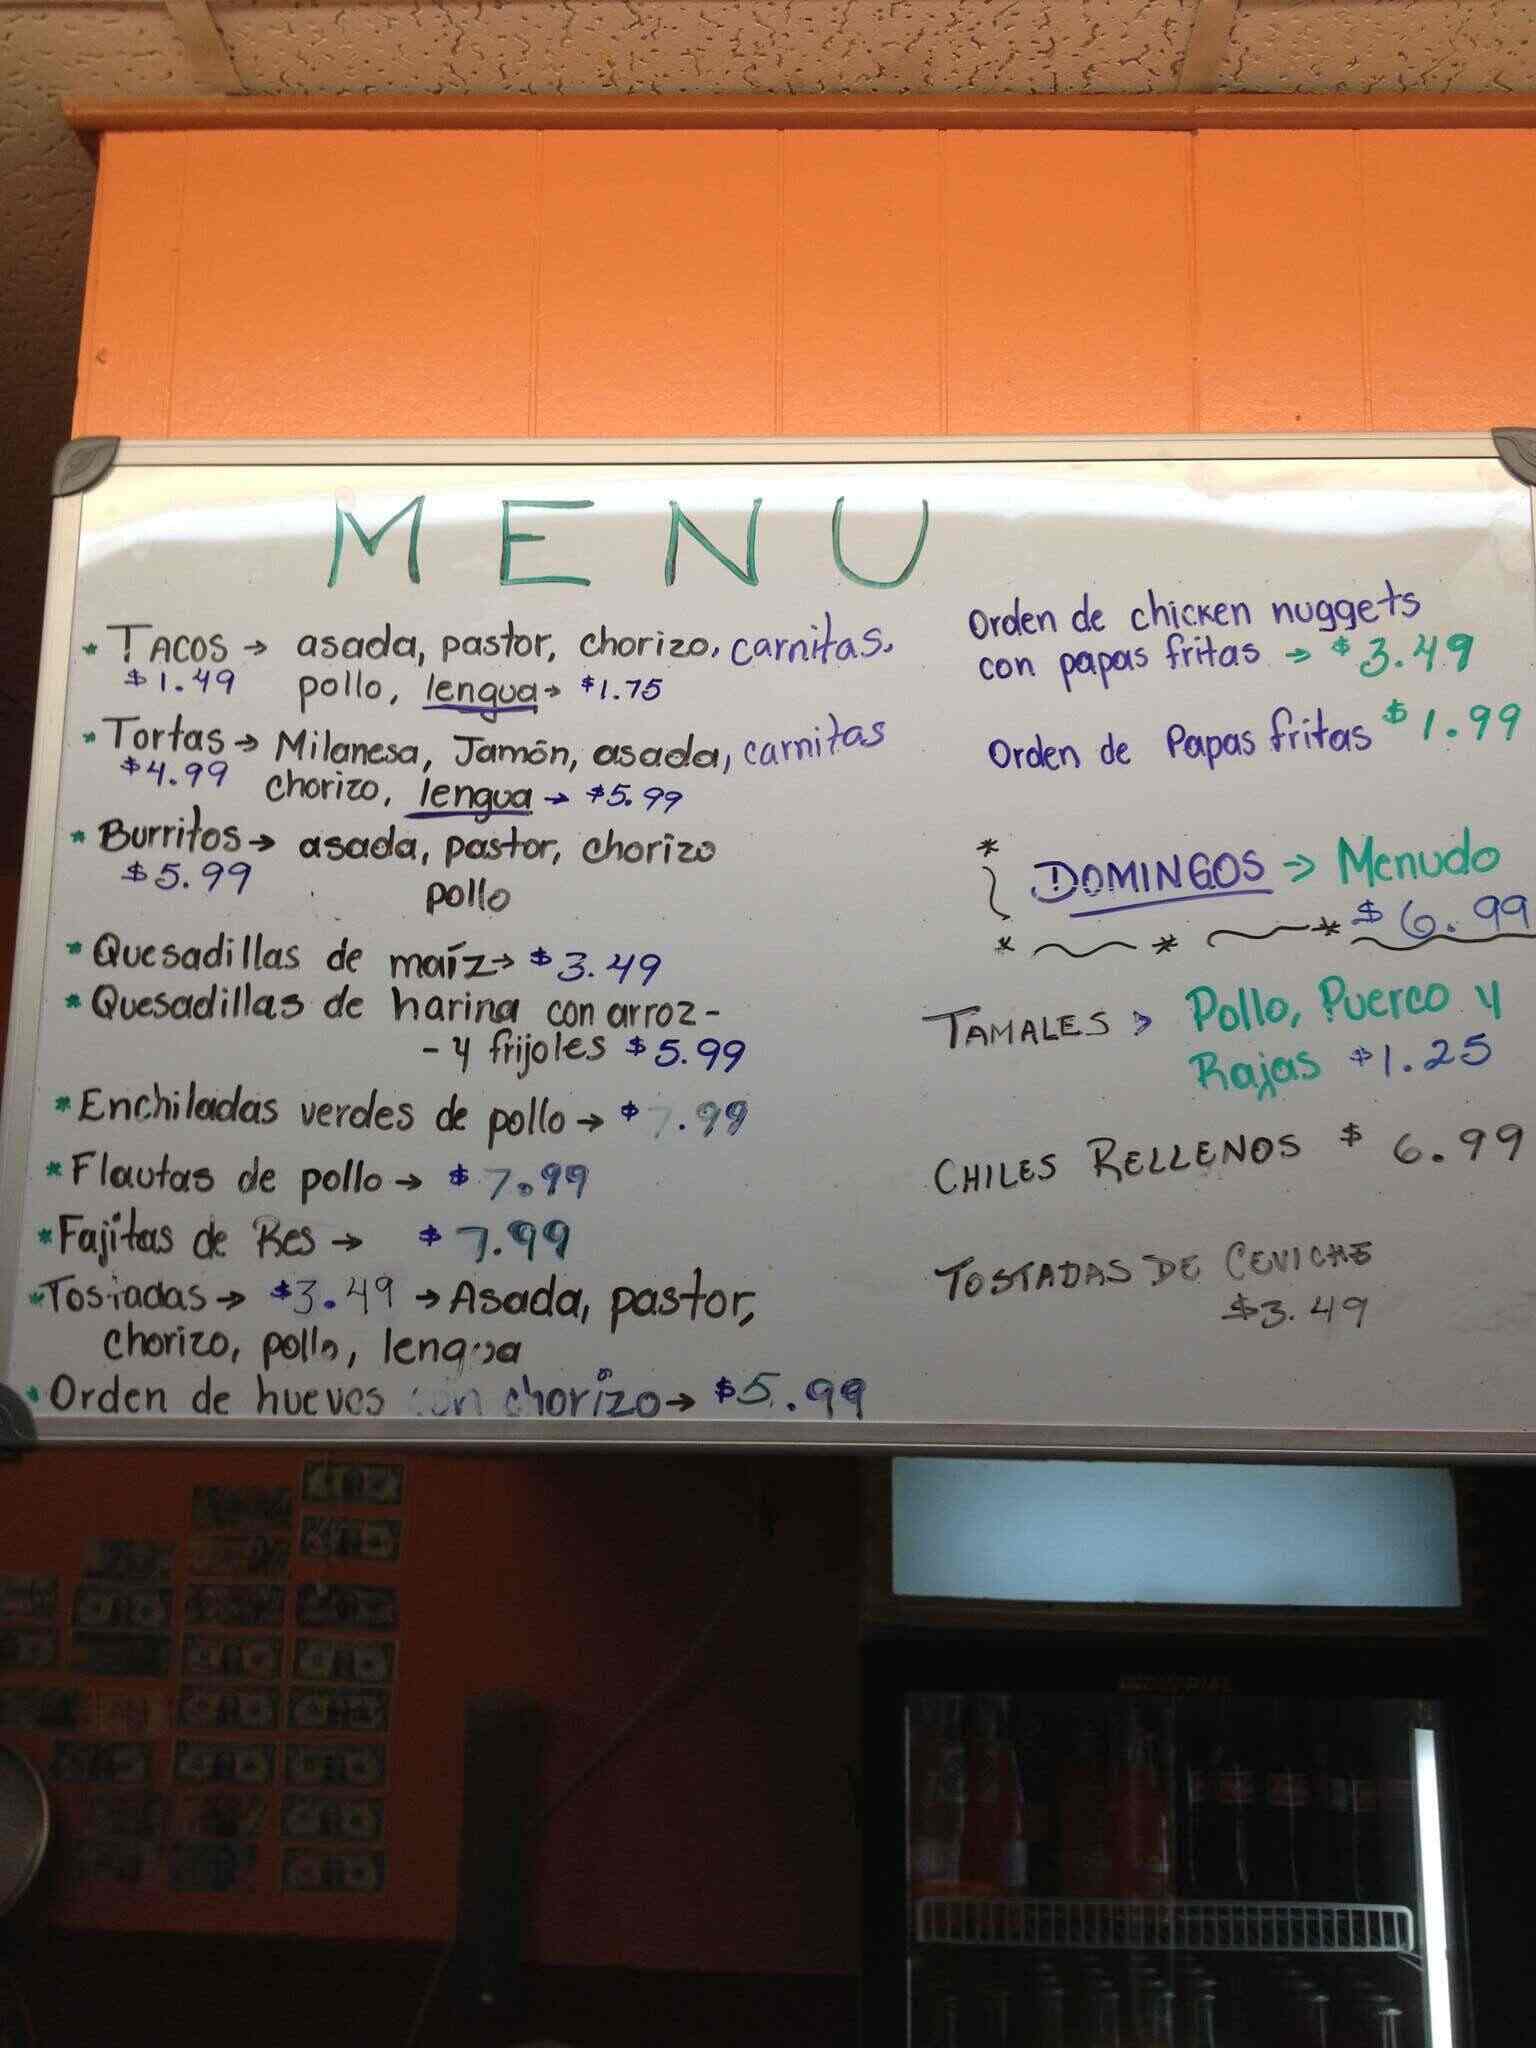 MENU
* TACOS → asada, pastor, chorizo, carnitas,
$1.49 pollo, lengua → $1.75
* Tortas → Milanesa, Jamón, asada, carnitas
$4.99 chorizo, lengua → $5.99
* Burritos → asada, pastor, chorizo
$5.99 pollo
* Quesadillas de maíz → $3.49
* Quesadillas de harina con arroz -
- y frijoles $5.99
* Enchiladas verdes de pollo → $7.99
* Flautas de pollo → $7.99
* Fajitas de Res → $7.99
* Tostadas → $3.49 → Asada, pastor,
chorizo, pollo, lengua
* Orden de huevos con chorizo → $5.99
Orden de chicken nuggets
con papas fritas → $3.49
Orden de Papas fritas $1.99
DOMINGOS → Menudo
$6.99
TAMALES > Pollo, Puerco y
Rajas $1.25
CHILES RELLENOS $6.99
TOSTADAS DE CEVICHE
$3.49